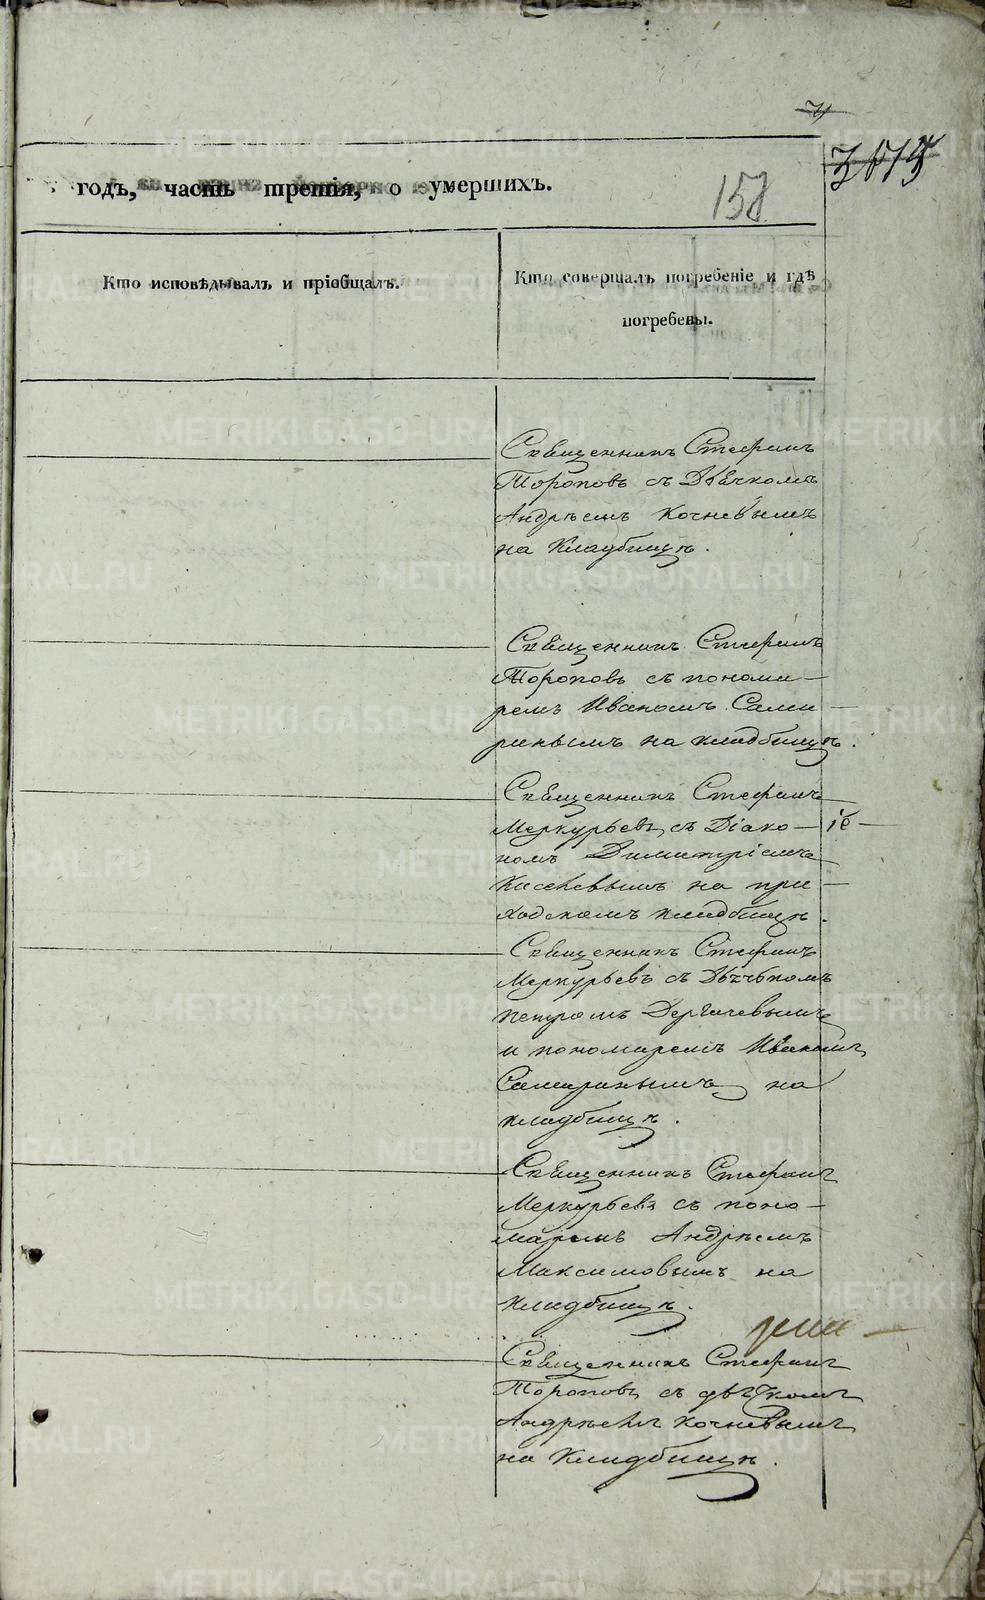 годъ, часть третія, о умершихъ.
158
Кто исповѣдывалъ и пріобщалъ.
Кто совершалъ погребеніе и гдѣ
погребены.
Священникъ Стефанъ
Тороповъ съ Дьячкомъ
Андрѣемъ Кочневымъ
на Кладбищѣ.
Священникъ Стефанъ
Тороповъ съ понома-
ремъ Иваномъ Сама-
ринымъ на кладбищѣ.
Священникъ Стефанъ
Меркурьевъ съ Діако-
номъ Димитріемъ
на при-
ходскомъ кладбищѣ.
Священникъ Стефанъ
Меркурьевъ съ Дьячкомъ
Петромъ Дергачевымъ
и пономаремъ Иваномъ
Самаринымъ на
кладбищѣ.
Священникъ Стефанъ
Меркурьевъ съ поно-
маремъ Андрѣемъ
Максимовымъ на
кладбищѣ.
Священникъ Стефанъ
Тороповъ съ дьячкомъ
Андрѣемъ Кочневымъ
на Кладбищѣ.
METRIKI.GASO-URAL.RU